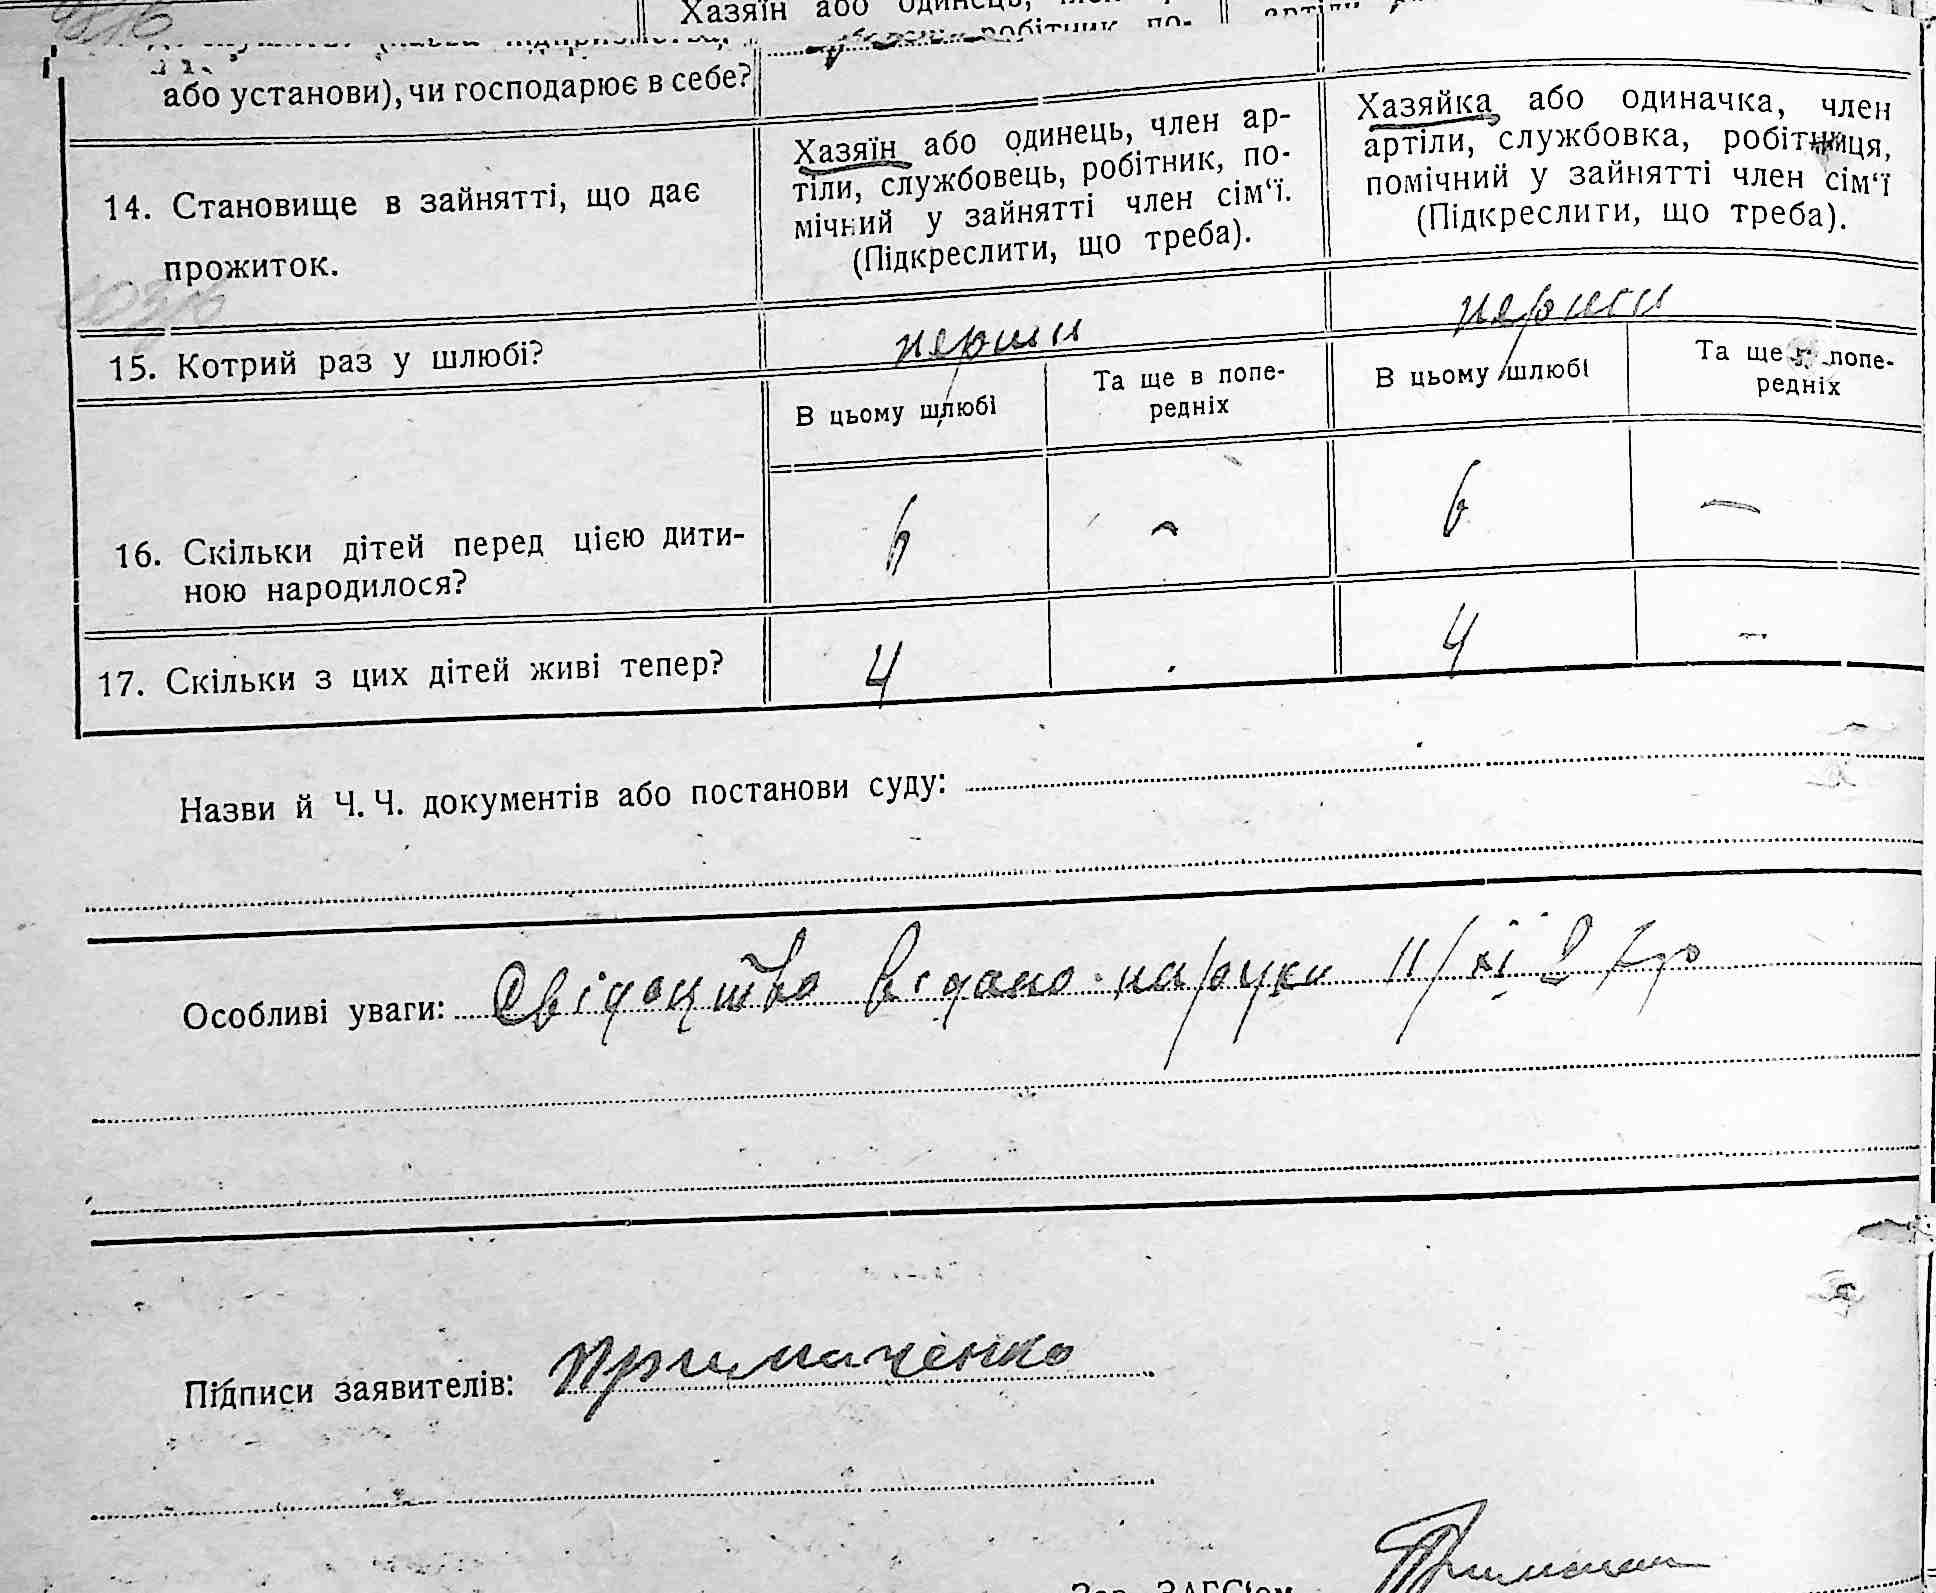 Хазяїн або одинець,
робітник по-
або установи), чи господарює в себе?
14. Становище в зайнятті, що дає
прожиток.
Хазяїн або одинець, член ар-
тіли, службовець, робітник, по-
мічний у зайнятті член сім‘ї.
(Підкреслити, що треба).
Хазяйка або одиначка, член
артіли, службовка, робітниця,
помічний у зайнятті член сім‘ї
(Підкреслити, що треба).
15. Котрий раз у шлюбі?
перши
перши
В цьому шлюбі
Та ще в попе-
редніх
В цьому шлюбі
Та ще в попе-
редніх
16. Скільки дітей перед цією дити-
ною народилося?
6 - 6 -
17. Скільки з цих дітей живі тепер?
4 4 -
Назви й Ч. Ч. документів або постанови суду:
Особливі уваги: Свідоцтво видано на руки 11/XI
Підписи заявителів: Примаченко
Зав. ЗАГС'ом